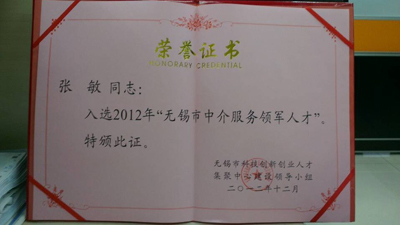 荣誉证书
HONORARY CREDENTIAL
张 敏 同志:
入选2012年“无锡市中介服务领军人才”。
特颁此证。
无锡市科技创新创业人才
集聚中心建设领导小组
二〇一二年十二月